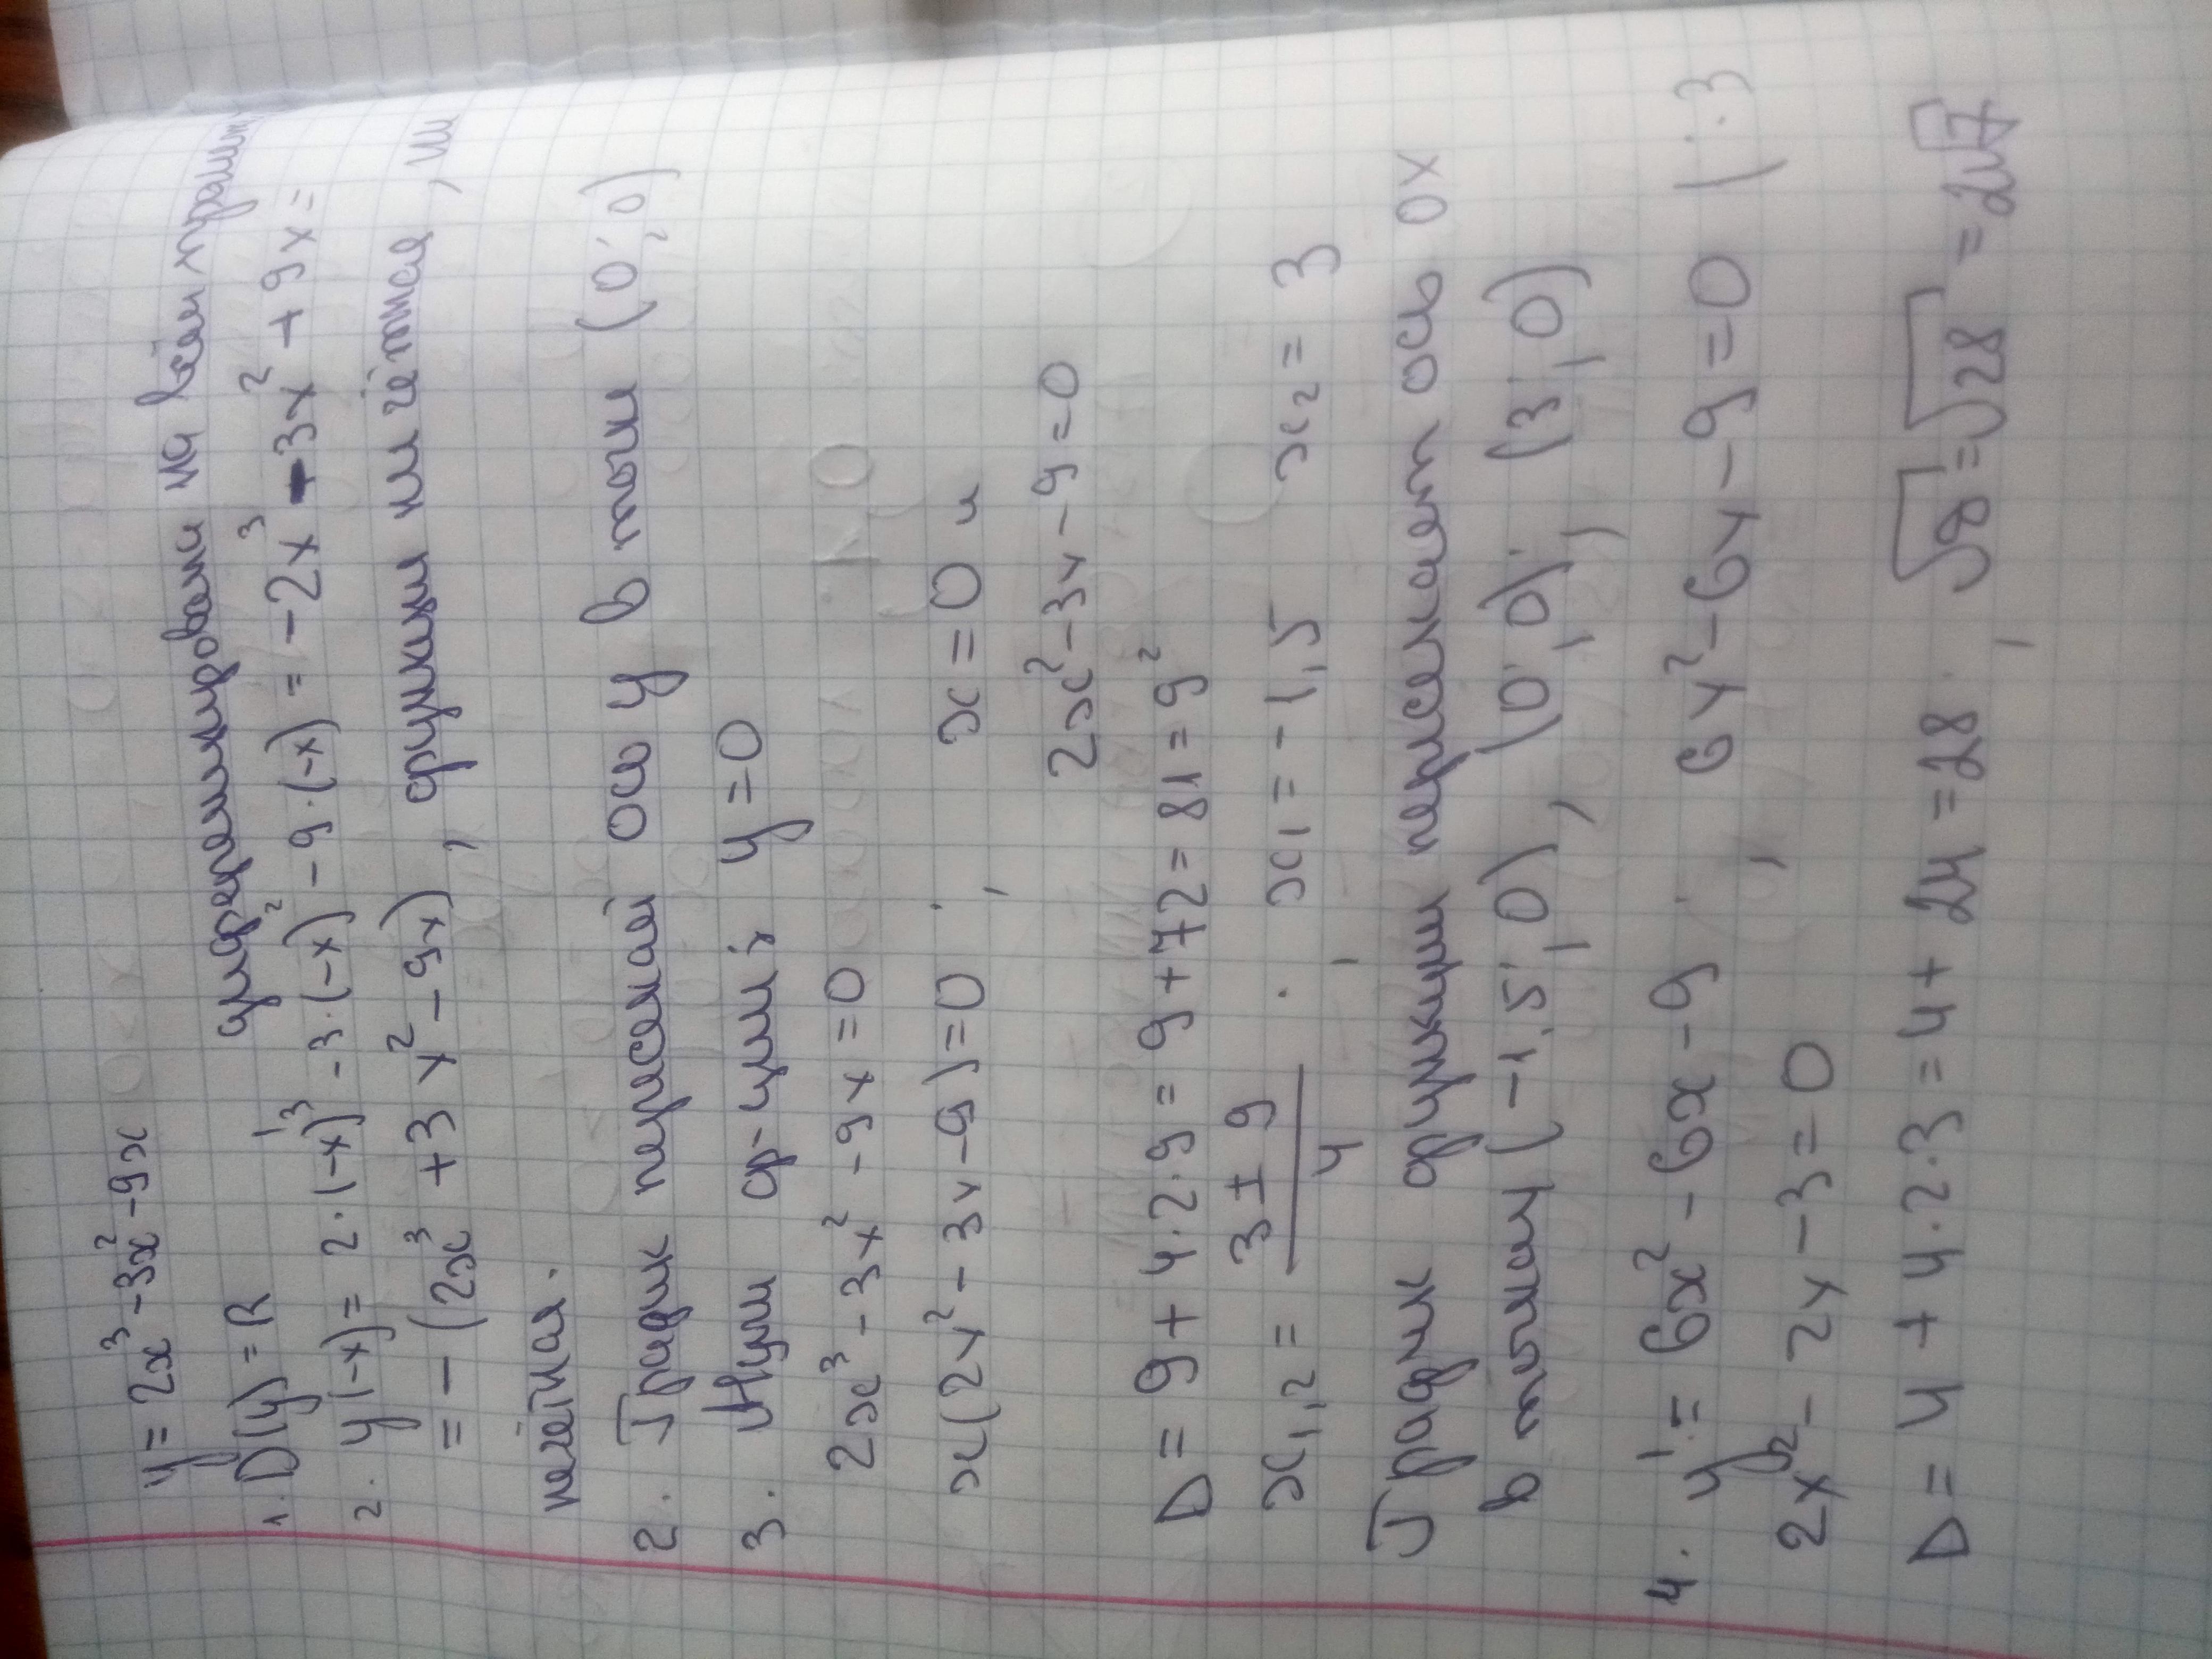 y = 2x³ - 3x² - 9x
1. D(y) = R дифференцирована на всём
2. y(-x) = 2·(-x)³ - 3·(-x)² - 9·(-x) = -2x³ - 3x² + 9x =
= -(2x³ + 3x² - 9x), функции ни чётная, ни
нечётная.
2. График пересекай ось y в точки (0; 0)
3. Нули ф-ции: y = 0
2x³ - 3x² - 9x = 0
x(2x² - 3x - 9) = 0 ; x = 0 и
2x² - 3x - 9 = 0
D = 9 + 4·2·9 = 9 + 72 = 81 = 9²
x₁,₂ = (3 ± 9)/4 ; x₁ = -1,5 x₂ = 3
График функции пересекает ось Ox
в точках (-1,5; 0), (0; 0); (3; 0)
4. y' = 6x² - 6x - 9 ; 6x² - 6x - 9 = 0 (:3
2x² - 2x - 3 = 0
D = 4 + 4·2·3 = 4 + 24 = 28 ; √D = √28 = 2√7